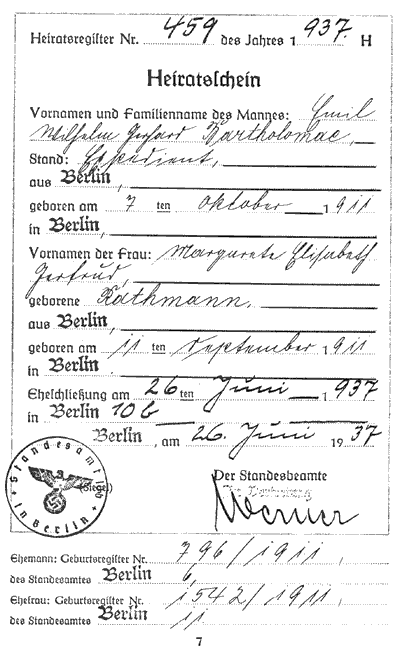 Heiratsregister Nr. 459 des Jahres 1 937. H
Heiratsschein
Vornamen und Familienname des Mannes: Emil
Wilhelm Gerhard Bartholomae,
Stand: Expedient,
aus Berlin,
geboren am 7 ten Oktober 1 911
in Berlin,
Vornamen der Frau: Margarete Elisabeth
Gertrud,
geborene Rathmann,
aus Berlin,
geboren am 11 ten September 1 911
in Berlin,
Eheschließung am 26 ten Juni 1 937
in Berlin 10 b
Berlin, am 26. Juni 19 37
Standesamt 10b
in Berlin
(Siegel)
Der Standesbeamte
Werner
Ehemann: Geburtsregister Nr. 796/1911,
des Standesamtes Berlin 6,
Ehefrau: Geburtsregister Nr. 1542/1911,
des Standesamtes Berlin 11
7